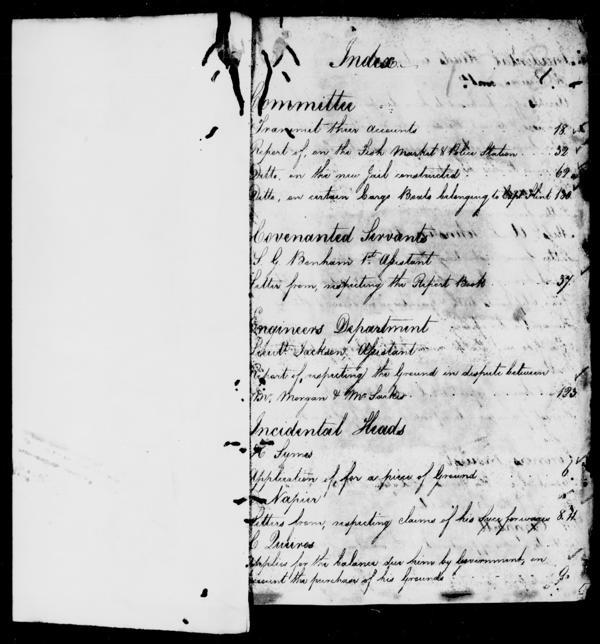 Index
Committee
Transmit their accounts 18
Report of, on the Fish Market & Police Station 32
Ditto, on the new Jail constructed 69
Ditto, on certain Cargo Boats belonging to Capt Flint 130
Covenanted Servants
S. G. Bonham 1st Assistant
Letter from, respecting the Report Book 37
Engineers Department
Lieutt Jackson, Assistant
Report of, respecting the Ground in dispute between
Mr. Morgan & Mr Sarkies 133
Incidental Heads
Symes
Application of, for a piece of Ground 6
Napier
Letters from, respecting claims of his for wages 8.
Applies for the balance due him by Government, on
account the purchase of his Grounds 9